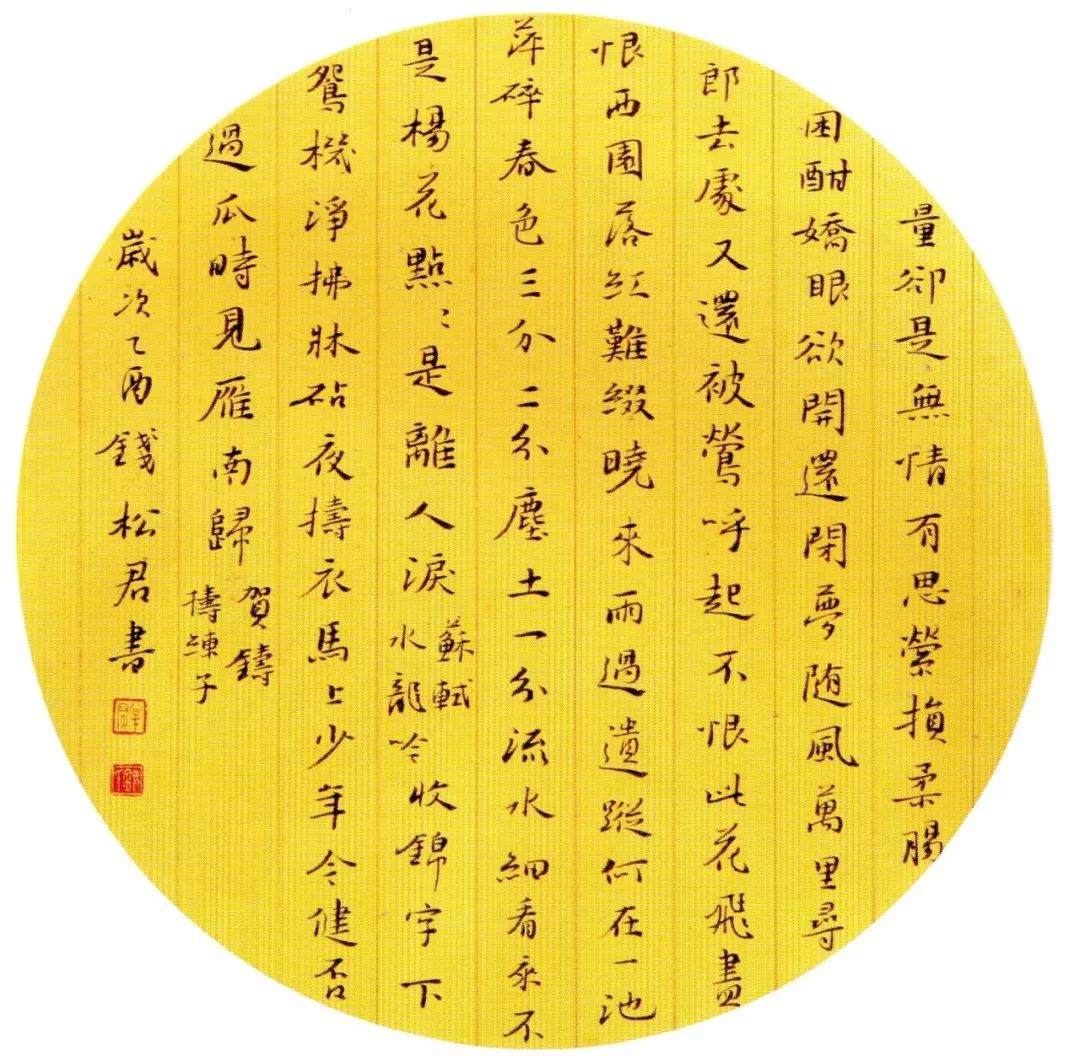 量卻是無情有思縈損柔腸
困酣嬌眼欲開還閉夢随風萬里尋
郎去處又還被鶯呼起不恨此花飛盡
恨西園落紅難綴曉來雨過遺蹤何在一池
萍碎春色三分二分塵土一分流水細看來不
是楊花點〻是離人淚
蘇軾
水龍吟
收錦字下
鴛機淨拂牀砧夜擣衣馬上少年今健否
過瓜時見雁南歸
賀鑄
擣練子
歲次乙酉錢松君書